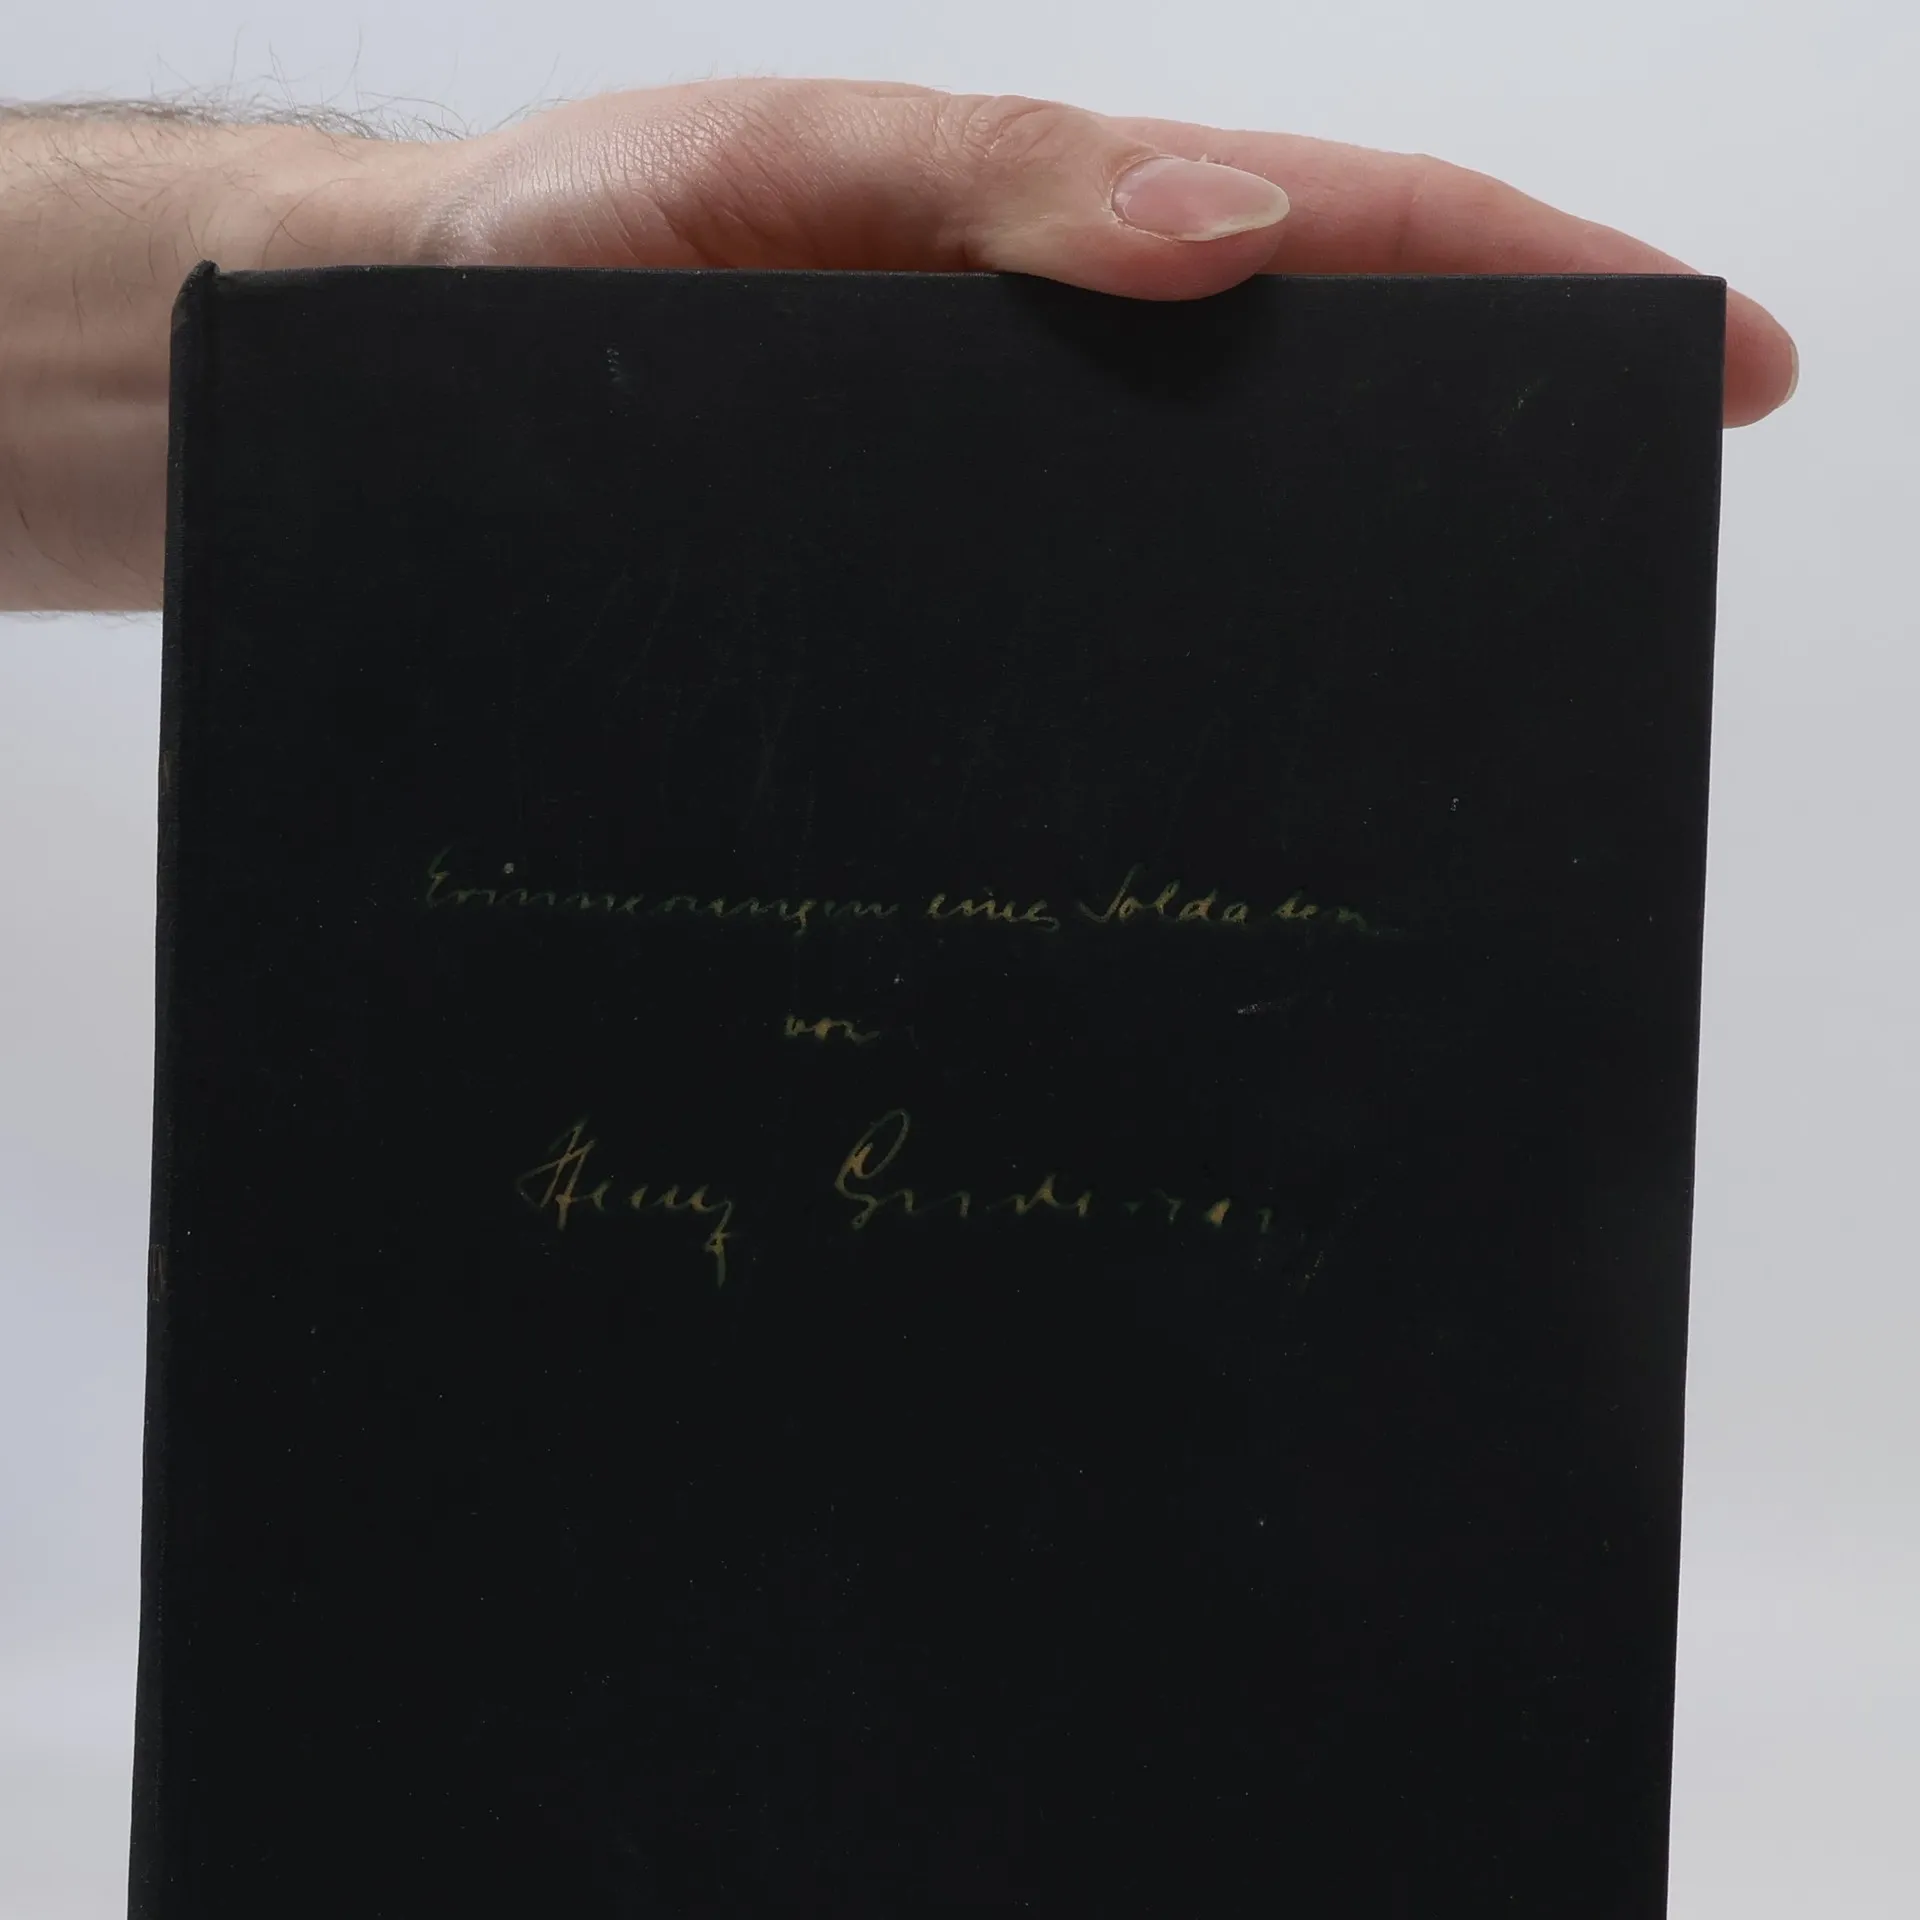 Erinnerungen eines Soldaten
von
Heinz Guderian